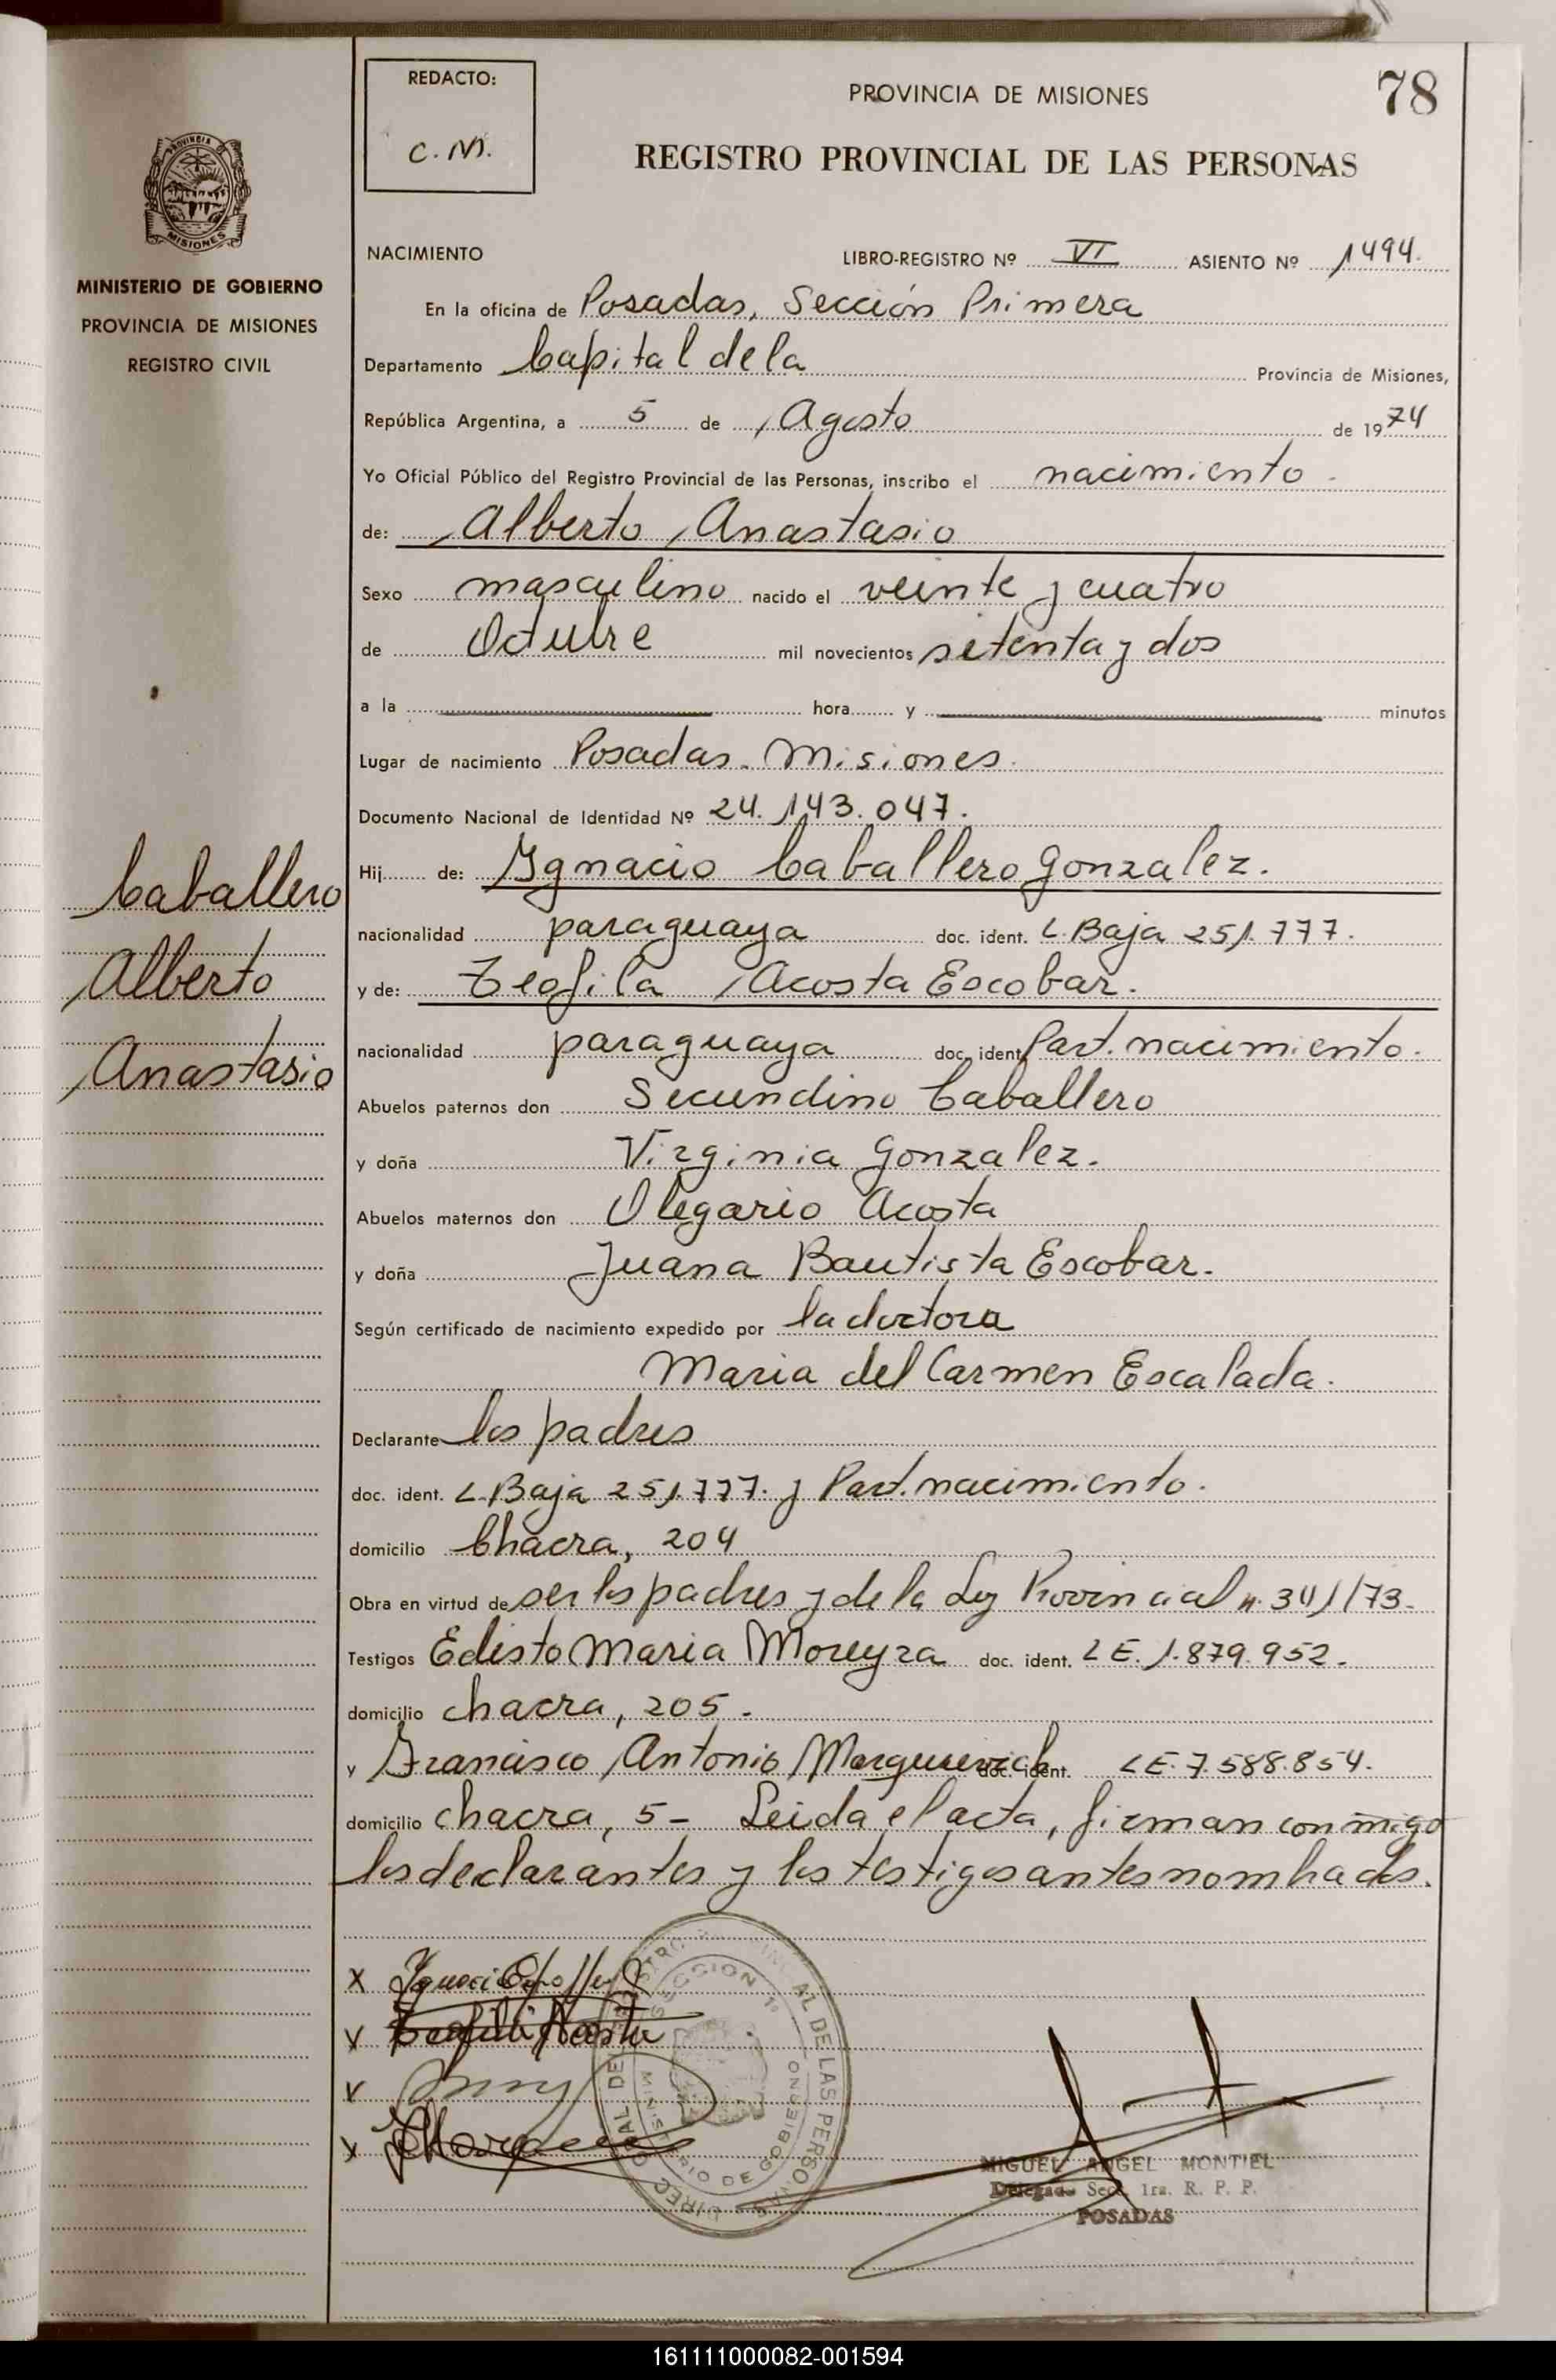 REDACTO:
C. M.
PROVINCIA DE MISIONES
78
REGISTRO PROVINCIAL DE LAS PERSONAS
PROVINCIA
MISIONES
MINISTERIO DE GOBIERNO
PROVINCIA DE MISIONES
REGISTRO CIVIL
NACIMIENTO LIBRO-REGISTRO Nº VI ASIENTO Nº 1494.
En la oficina de Posadas, Sección Primera
Departamento Capital de la Provincia de Misiones,
República Argentina, a 5 de Agosto de 1974
Yo Oficial Público del Registro Provincial de las Personas, inscribo el nacimiento.
de: Alberto Anastasio
Sexo masculino nacido el veinte y cuatro
de Octubre mil novecientos setenta y dos
a la hora y minutos
Lugar de nacimiento Posadas. Misiones.
Documento Nacional de Identidad Nº 24.143.047.
Caballero
Alberto
Anastasio
Hij de: Ygnacio Caballero Gonzalez.
nacionalidad paraguaya doc. ident. L. Baja 251.777.
y de: Teofila Acosta Escobar.
nacionalidad paraguaya doc. ident. Part. nacimiento.
Abuelos paternos don Secundino Caballero
y doña Virginia Gonzalez.
Abuelos maternos don Olegario Acosta
y doña Juana Bautista Escobar.
Según certificado de nacimiento expedido por la doctora
Maria del Carmen Escalada.
Declarante los padres
doc. ident. L. Baja 251.777. y Part. nacimiento.
domicilio Chacra, 204
Obra en virtud de ser los padres y de la Ley Provincial n. 341/73.
Testigos Edisto Maria Moreyra doc. ident. L E. 1.879.952.
domicilio chacra, 205.
y Francisco Antonio doc. ident. L E. 7.588.854.
domicilio chacra, 5- Leida el acta, firman conmigo
los declarantes y los testigos antes nombrados.
X
X Teofila Acosta
X
X
SECCION 1ª
MINISTERIO DE GOBIERNO
MIGUEL ANGEL MONTIEL
Delegado Secc. 1ra. R. P. P.
POSADAS
161111000082-001594